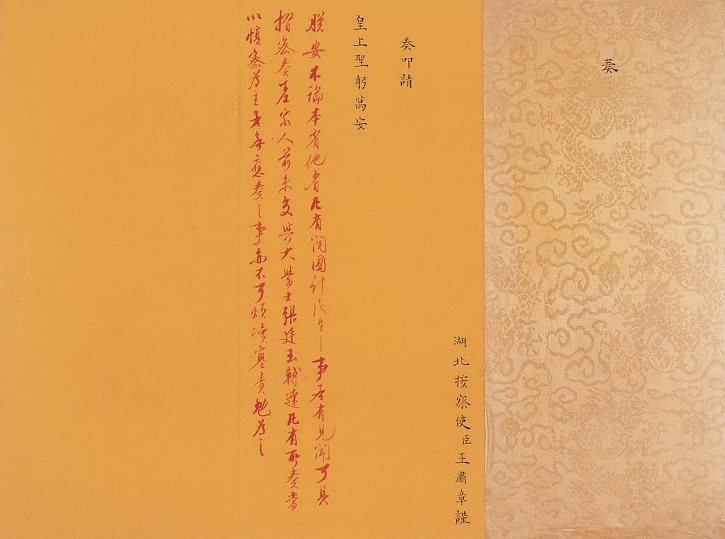 奏
湖北按察使臣王肅章謹
奏叩請
皇上聖躬萬安
朕安不論本省他省凡有関國計民生之事若有見聞可具
摺密奏差家人前來交與大學士張廷玉轉達凡有所奏當
以慎密為主若無應奏之事亦不可煩瀆塞責勉為之